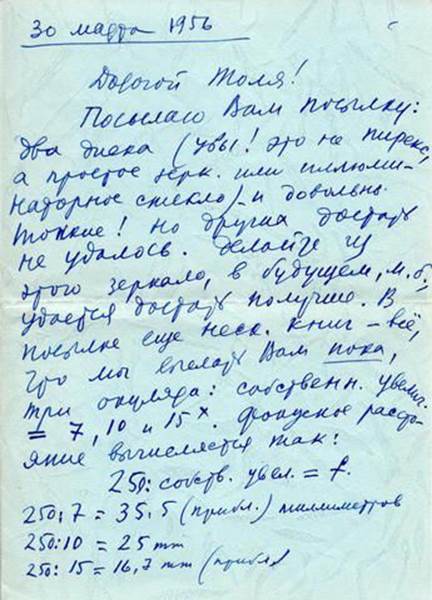 30 марта 1956
Дорогой Толя!
Посылаю Вам посылку:
два диска (увы! это не пирекс,
а простое зерк. или иллюми-
наторное стекло) - и довольно
тонкие! Но других достать
не удалось. Делайте из
этого зеркало, в будущем, м.б,
удастся достать получше. В
посылке еще неск. книг - всё,
что мы выслать Вам пока,
три окуляра: собственн. увелич.
= 7, 10 и 15ˣ. Фокусное расстo-
яние вычисляется так:
250: собств. увел. = f.
250:7 = 35.5 (прибл.) миллиметров
250:10 = 25 mm
250:15 = 16,7 mm (прибл)